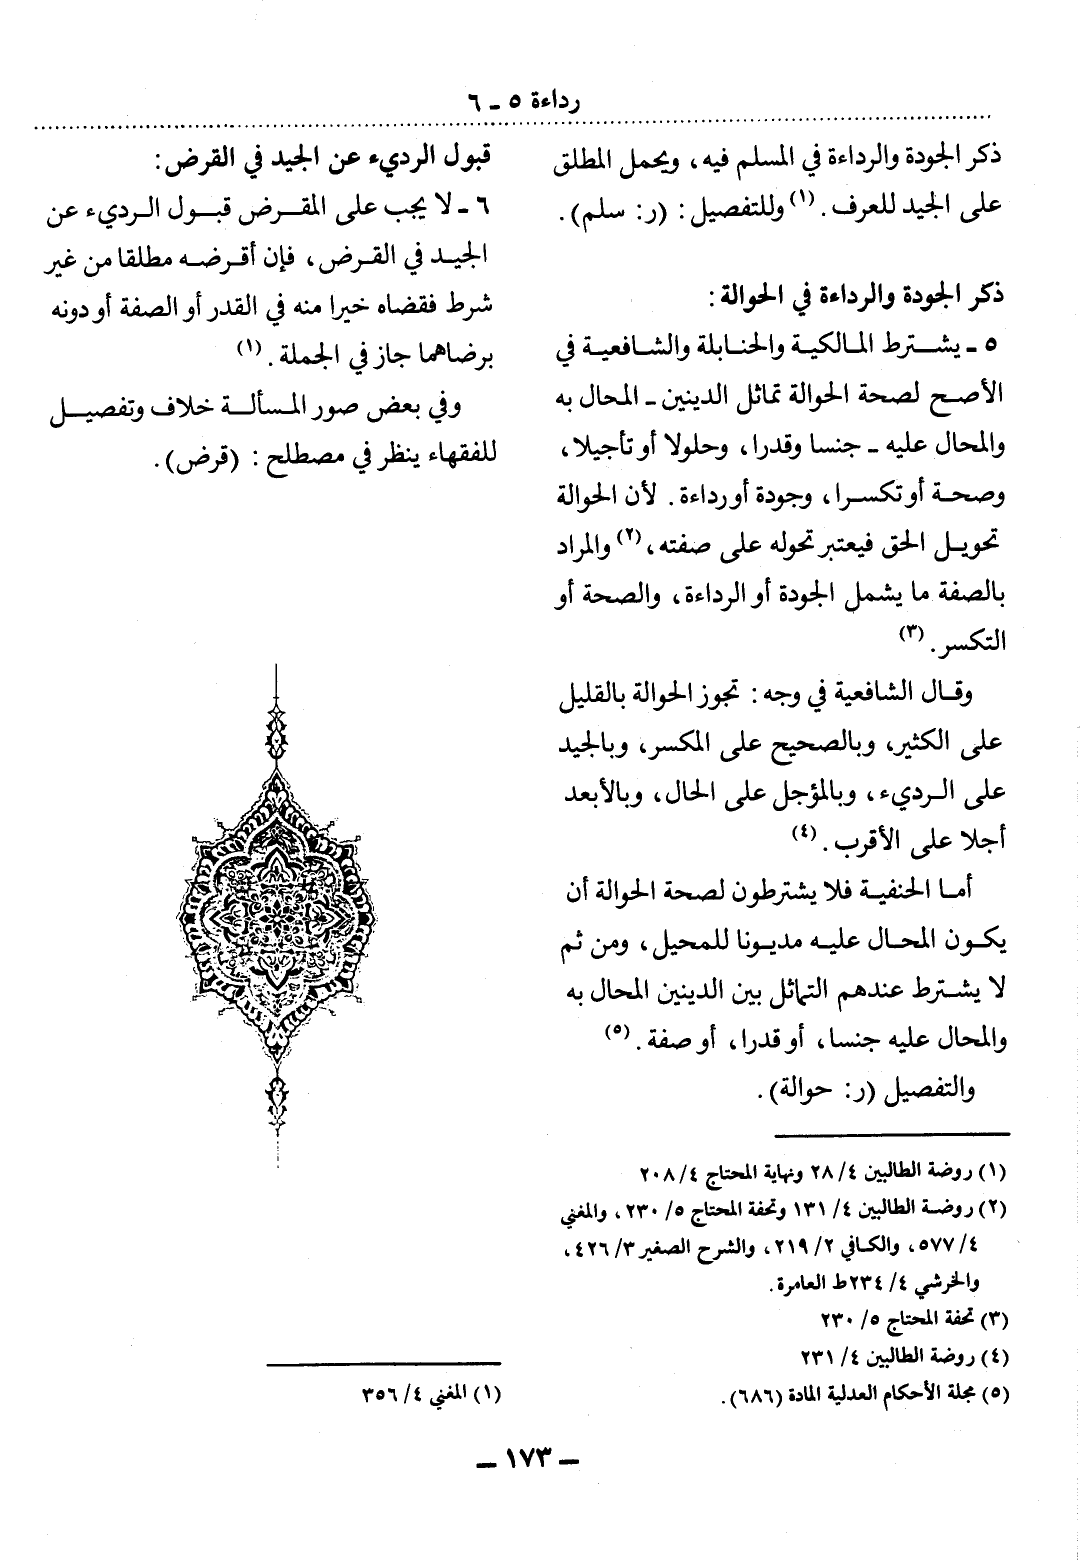 رداءة ٥ ـ ٦
ذكر الجودة والرداءة في المسلم فيه، ويحمل المطلق
على الجيد للعرف. (١) وللتفصيل: (ر: سلم).
ذكر الجودة والرداءة في الحوالة:
٥ ـ يشترط المالكية والحنابلة والشافعية في
الأصح لصحة الحوالة تماثل الدينين ـ المحال به
والمحال عليه ـ جنسا وقدرا، وحلولا أو تأجيلا،
وصحة أو تكسرا، وجودة أو رداءة. لأن الحوالة
تحويل الحق فيعتبر تحوله على صفته، (٢) والمراد
بالصفة ما يشمل الجودة أو الرداءة، والصحة أو
التكسر. (٣)
وقال الشافعية في وجه: تجوز الحوالة بالقليل
على الكثير، وبالصحيح على المكسر، وبالجيد
على الرديء، وبالمؤجل على الحال، وبالأبعد
أجلا على الأقرب. (٤)
أما الحنفية فلا يشترطون لصحة الحوالة أن
يكون المحال عليه مديونا للمحيل، ومن ثم
لا يشترط عندهم التماثل بين الدينين المحال به
والمحال عليه جنسا، أو قدرا، أو صفة. (٥)
والتفصيل (ر: حوالة).
(١) روضة الطالبين ٤/ ٢٨ ونهاية المحتاج ٤/ ٢٠٨
(٢) روضة الطالبين ٤/ ١٣١ وتحفة المحتاج ٥/ ٢٣٠، والمغني
٤/ ٥٧٧، والكافي ٢/ ٢١٩، والشرح الصغير ٣/ ٤٢٦،
والخرشي ٤/ ٢٣٤ط العامرة.
(٣) تحفة المحتاج ٥/ ٢٣٠
(٤) روضة الطالبين ٤/ ٢٣١
(٥) مجلة الأحكام العدلية المادة (٦٨٦).
قبول الرديء عن الجيد في القرض:
٦ ـ لا يجب على المقرض قبول الرديء عن
الجيد في القرض، فإن أقرضه مطلقا من غير
شرط فقضاه خيرا منه في القدر أو الصفة أو دونه
برضاهما جاز في الجملة. (١)
وفي بعض صور المسألة خلاف وتفصيل
للفقهاء ينظر في مصطلح: (قرض).
(١) المغني ٤/ ٣٥٦
ـ ١٧٣ ـ